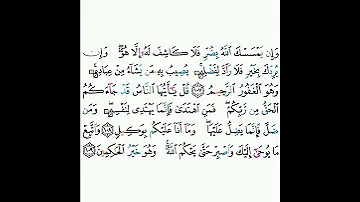 وَإِن يَمْسَسْكَ ٱللَّهُ بِضُرٍّ فَلَا كَاشِفَ لَهُۥٓ إِلَّا هُوَ ۖ وَإِن
يُرِدْكَ بِخَيْرٍ فَلَا رَآدَّ لِفَضْلِهِۦ ۚ يُصِيبُ بِهِۦ مَن يَشَآءُ مِنْ عِبَادِهِۦ ۚ
وَهُوَ ٱلْغَفُورُ ٱلرَّحِيمُ ١٠٧ قُلْ يَٰٓأَيُّهَا ٱلنَّاسُ قَدْ جَآءَكُمُ
ٱلْحَقُّ مِن رَّبِّكُمْ ۖ فَمَنِ ٱهْتَدَىٰ فَإِنَّمَا يَهْتَدِى لِنَفْسِهِۦ ۖ وَمَن
ضَلَّ فَإِنَّمَا يَضِلُّ عَلَيْهَا ۖ وَمَآ أَنَا۠ عَلَيْكُم بِوَكِيلٍ ١٠٨ وَٱتَّبِعْ
مَا يُوحَىٰٓ إِلَيْكَ وَٱصْبِرْ حَتَّىٰ يَحْكُمَ ٱللَّهُ ۚ وَهُوَ خَيْرُ ٱلْحَٰكِمِينَ ١٠٩